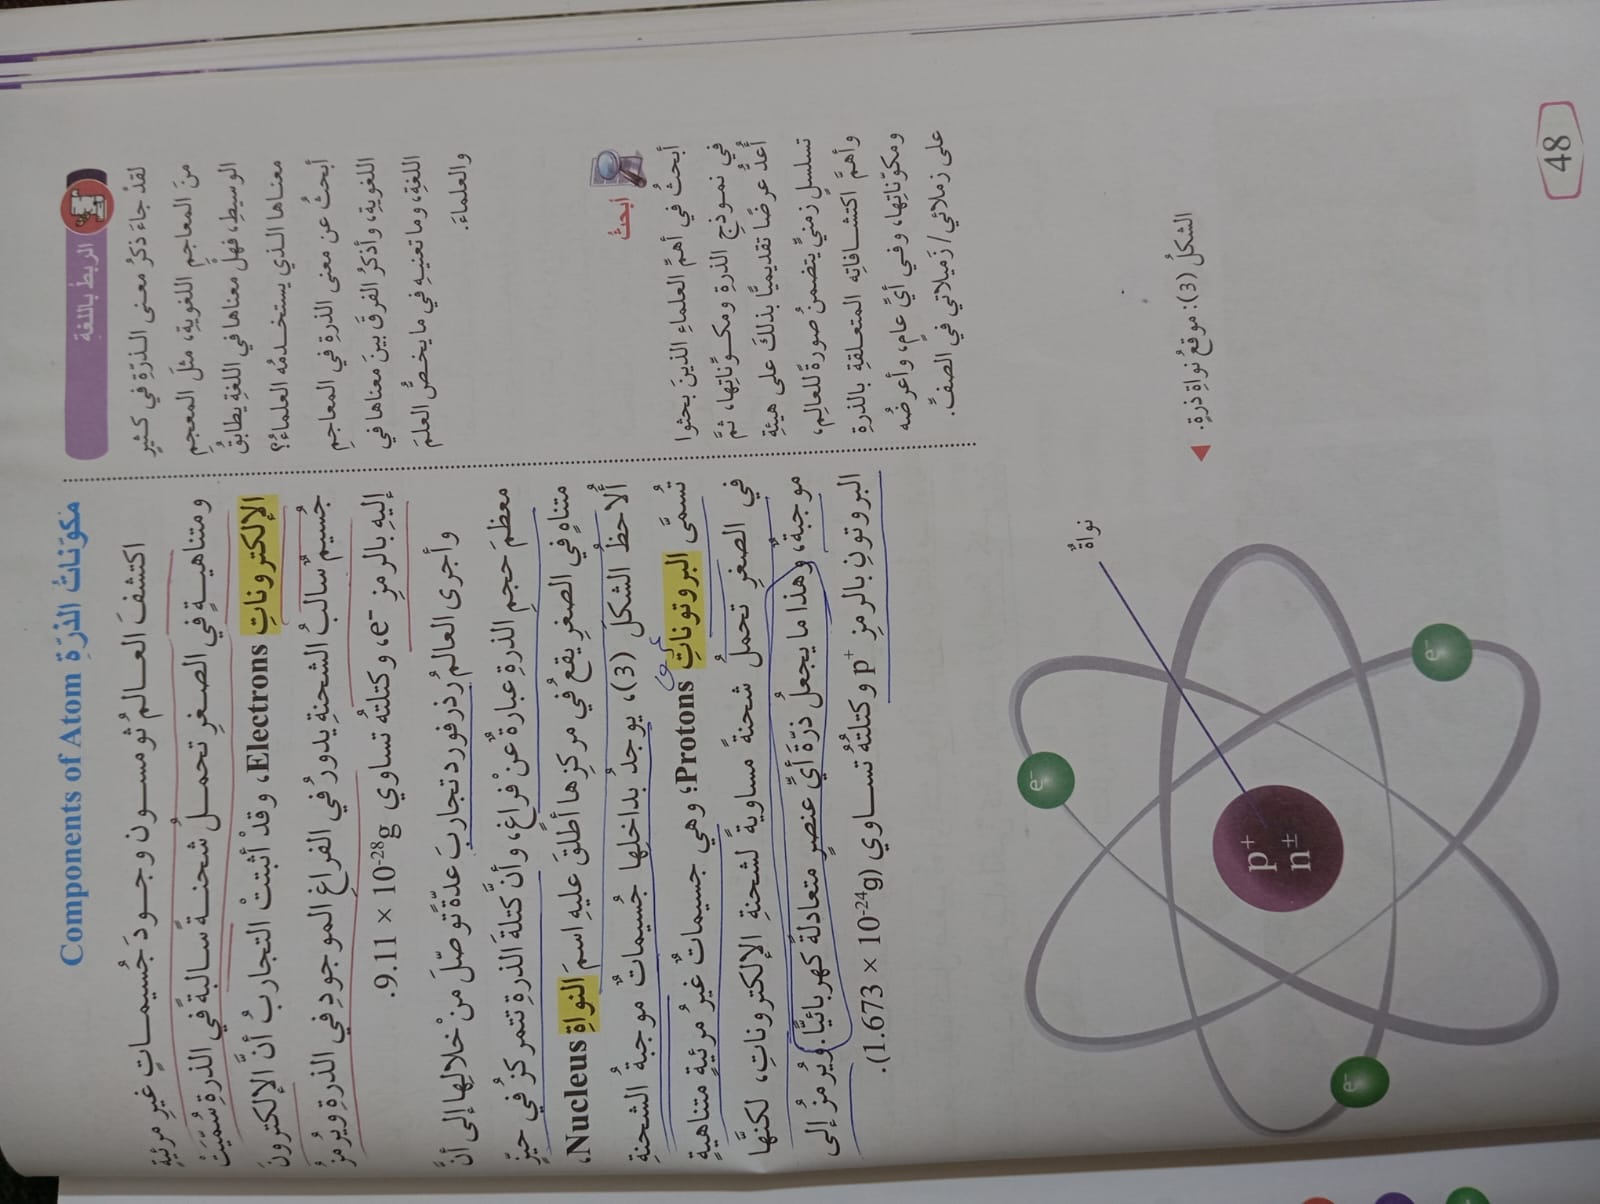 مكوّناتُ الذرّةِ Components of Atom
اكتشفَ العالمُ ثومسون وجودَ جُسيماتٍ غيرِ مرئيّةٍ
ومتناهيةٍ في الصغرِ تحملُ شحنةً سالبةً في الذرةِ سُمّيَتْ
الإلكتروناتِ Electrons، وقدْ أثبتتْ التجاربُ أنَّ الإلكترونَ
جُسيمٌ سالبُ الشحنةِ يدورُ في الفراغِ الموجودِ في الذرةِ ويُرمزُ
إليهِ بالرمزِ e⁻، وكتلتُه تساوي 9.11 × 10⁻²⁸g.
وأجرى العالمُ رذرفورد تجاربَ عدّةً توصّلَ منْ خلالِها إلى أنَّ
معظمَ حجمِ الذرةِ عبارةٌ عنْ فراغٍ، وأنَّ كتلةَ الذرةِ تتمركزُ في حيّزٍ
متناهٍ في الصغرِ يقعُ في مركزِها أطلقَ عليهِ اسمَ النواةِ Nucleus،
ألاحظُ الشكلَ (3)، يوجدُ بداخلِها جُسيماتٌ موجبةُ الشحنةِ
تُسمّى البروتوناتِ Protons؛ وهي جسيماتٌ غيرُ مرئيةٍ متناهيةٍ
في الصغرِ تحملُ شحنةً مساويةً لشحنةِ الإلكتروناتِ، لكنّها
موجبةٌ، وهذا ما يجعلُ ذرّةَ أيِّ عنصرٍ متعادلةً كهربائيًّا. ويُرمزُ إلى
البروتونِ بالرمزِ p⁺ وكتلتُهُ تساوي (1.673 × 10⁻²⁴g).
الربطُ باللغةِ
لقدْ جاءَ ذكرُ معنى الذرّةِ في كثيرٍ
منَ المعاجمِ اللغويةِ، مثلَ المعجمِ
الوسيطِ، فهلْ معناها في اللغةِ يطابقُ
معناها الذي يستخدمُه العلماءُ؟
أبحثُ عن معنى الذرةِ في المعاجمِ
اللغويةِ، وأذكرُ الفرقَ بينَ معناها في
اللغةِ، وما تعنيهِ في ما يخصُّ العلمَ
والعلماءَ.
أبحثُ
أبحثُ في أهمِّ العلماءِ الذينَ بحثوا
في نموذجِ الذرةِ ومكوّناتِها، ثمَّ
أُعدُّ عرضًا تقديميًّا بذلكَ على هيئةِ
تسلسلٍ زمنيٍّ يتضمنُ صورةً للعالِمِ،
وأهمَّ اكتشافاتِه المتعلقةِ بالذرةِ
ومكوّناتِها، وفي أيِّ عامٍ، وأعرضُه
على زملائي/ زميلاتي في الصفِّ.
نواةٌ
e⁻
e⁻
e⁻
p⁺
n±
الشكلُ (3): موقعُ نواةِ ذرةٍ.
48